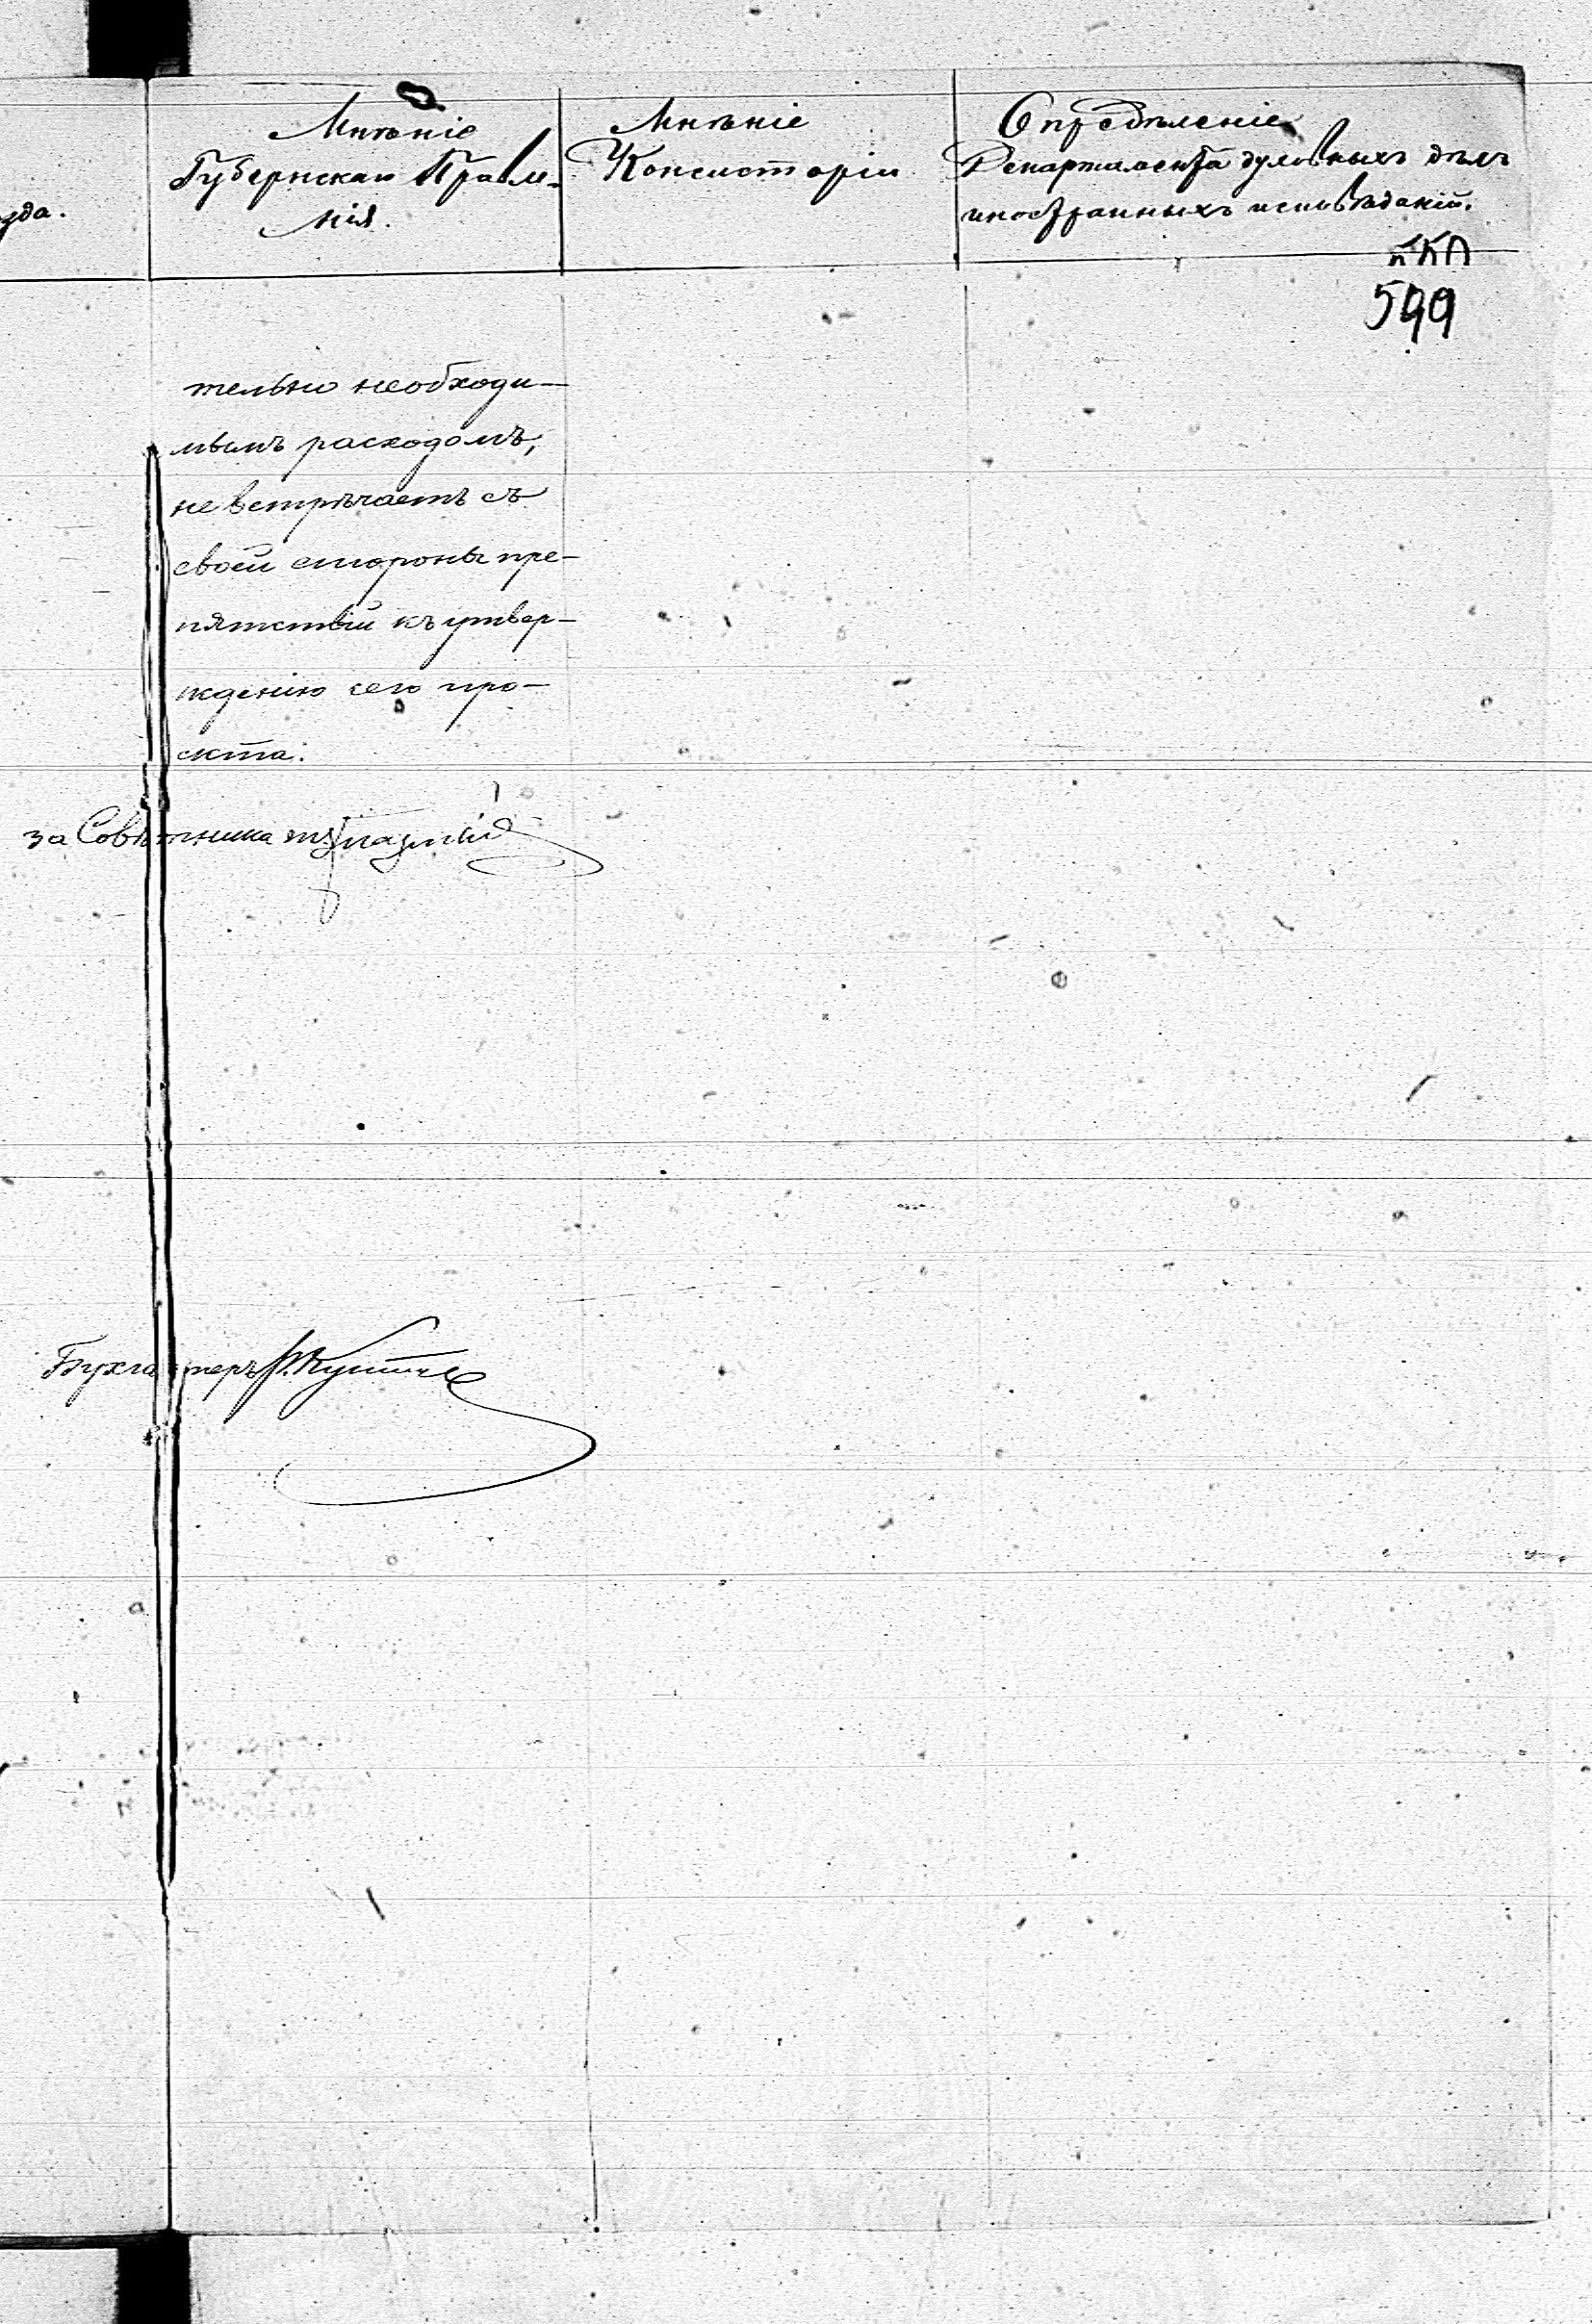 Мнѣніе
Губернскаго Правле-
нія.
Мнѣніе
Консисторіи
Опредѣленіе
Департамента духовныхъ дѣлъ
иностранныхъ исповѣданій.
599
тельно необходи-
мымъ расходомъ,
не встрѣчаетъ съ
своей стороны пре-
пятствій къ утвер-
жденію сего про-
екта.
за Совѣтника
Бухгалтеръ